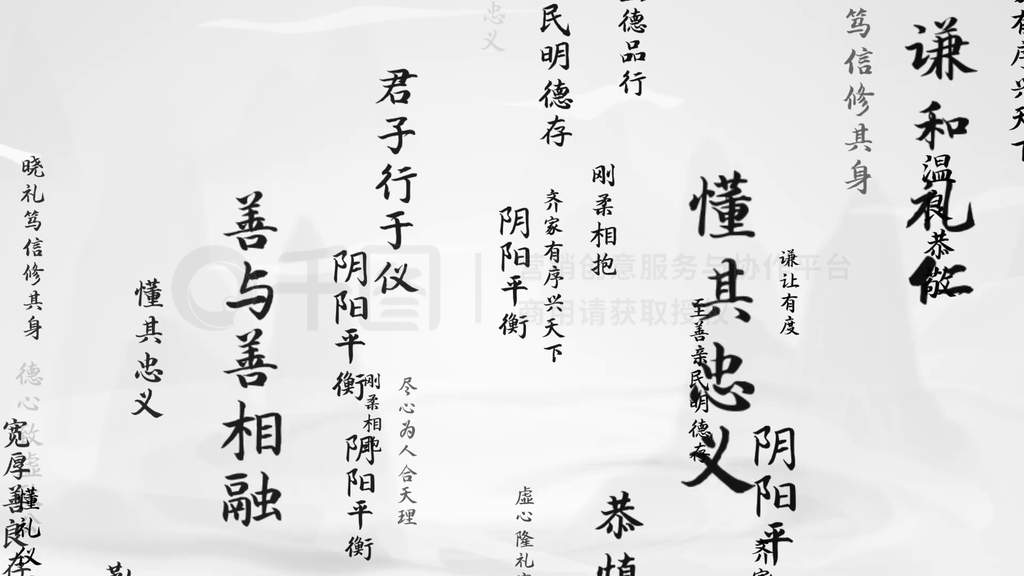 有序兴天下
谦和礼仁
温良恭敬
笃信修其身
谦让有度
阴阳平
齐家
懂其忠义
至善亲民明德存
德品行
刚柔相抱
恭慎
民明德存
齐家有序兴天下
阴阳平衡
虚心隆礼
忠义
君子行于仪
尽心为人合天理
刚柔相抱
阴阳平衡
阴阳平衡
善与善相融
懂其忠义
晓礼笃信修其身
德心放虚
懂礼仪
宽厚善良存
千图
营销创意服务与协作平台
商用请获取授权